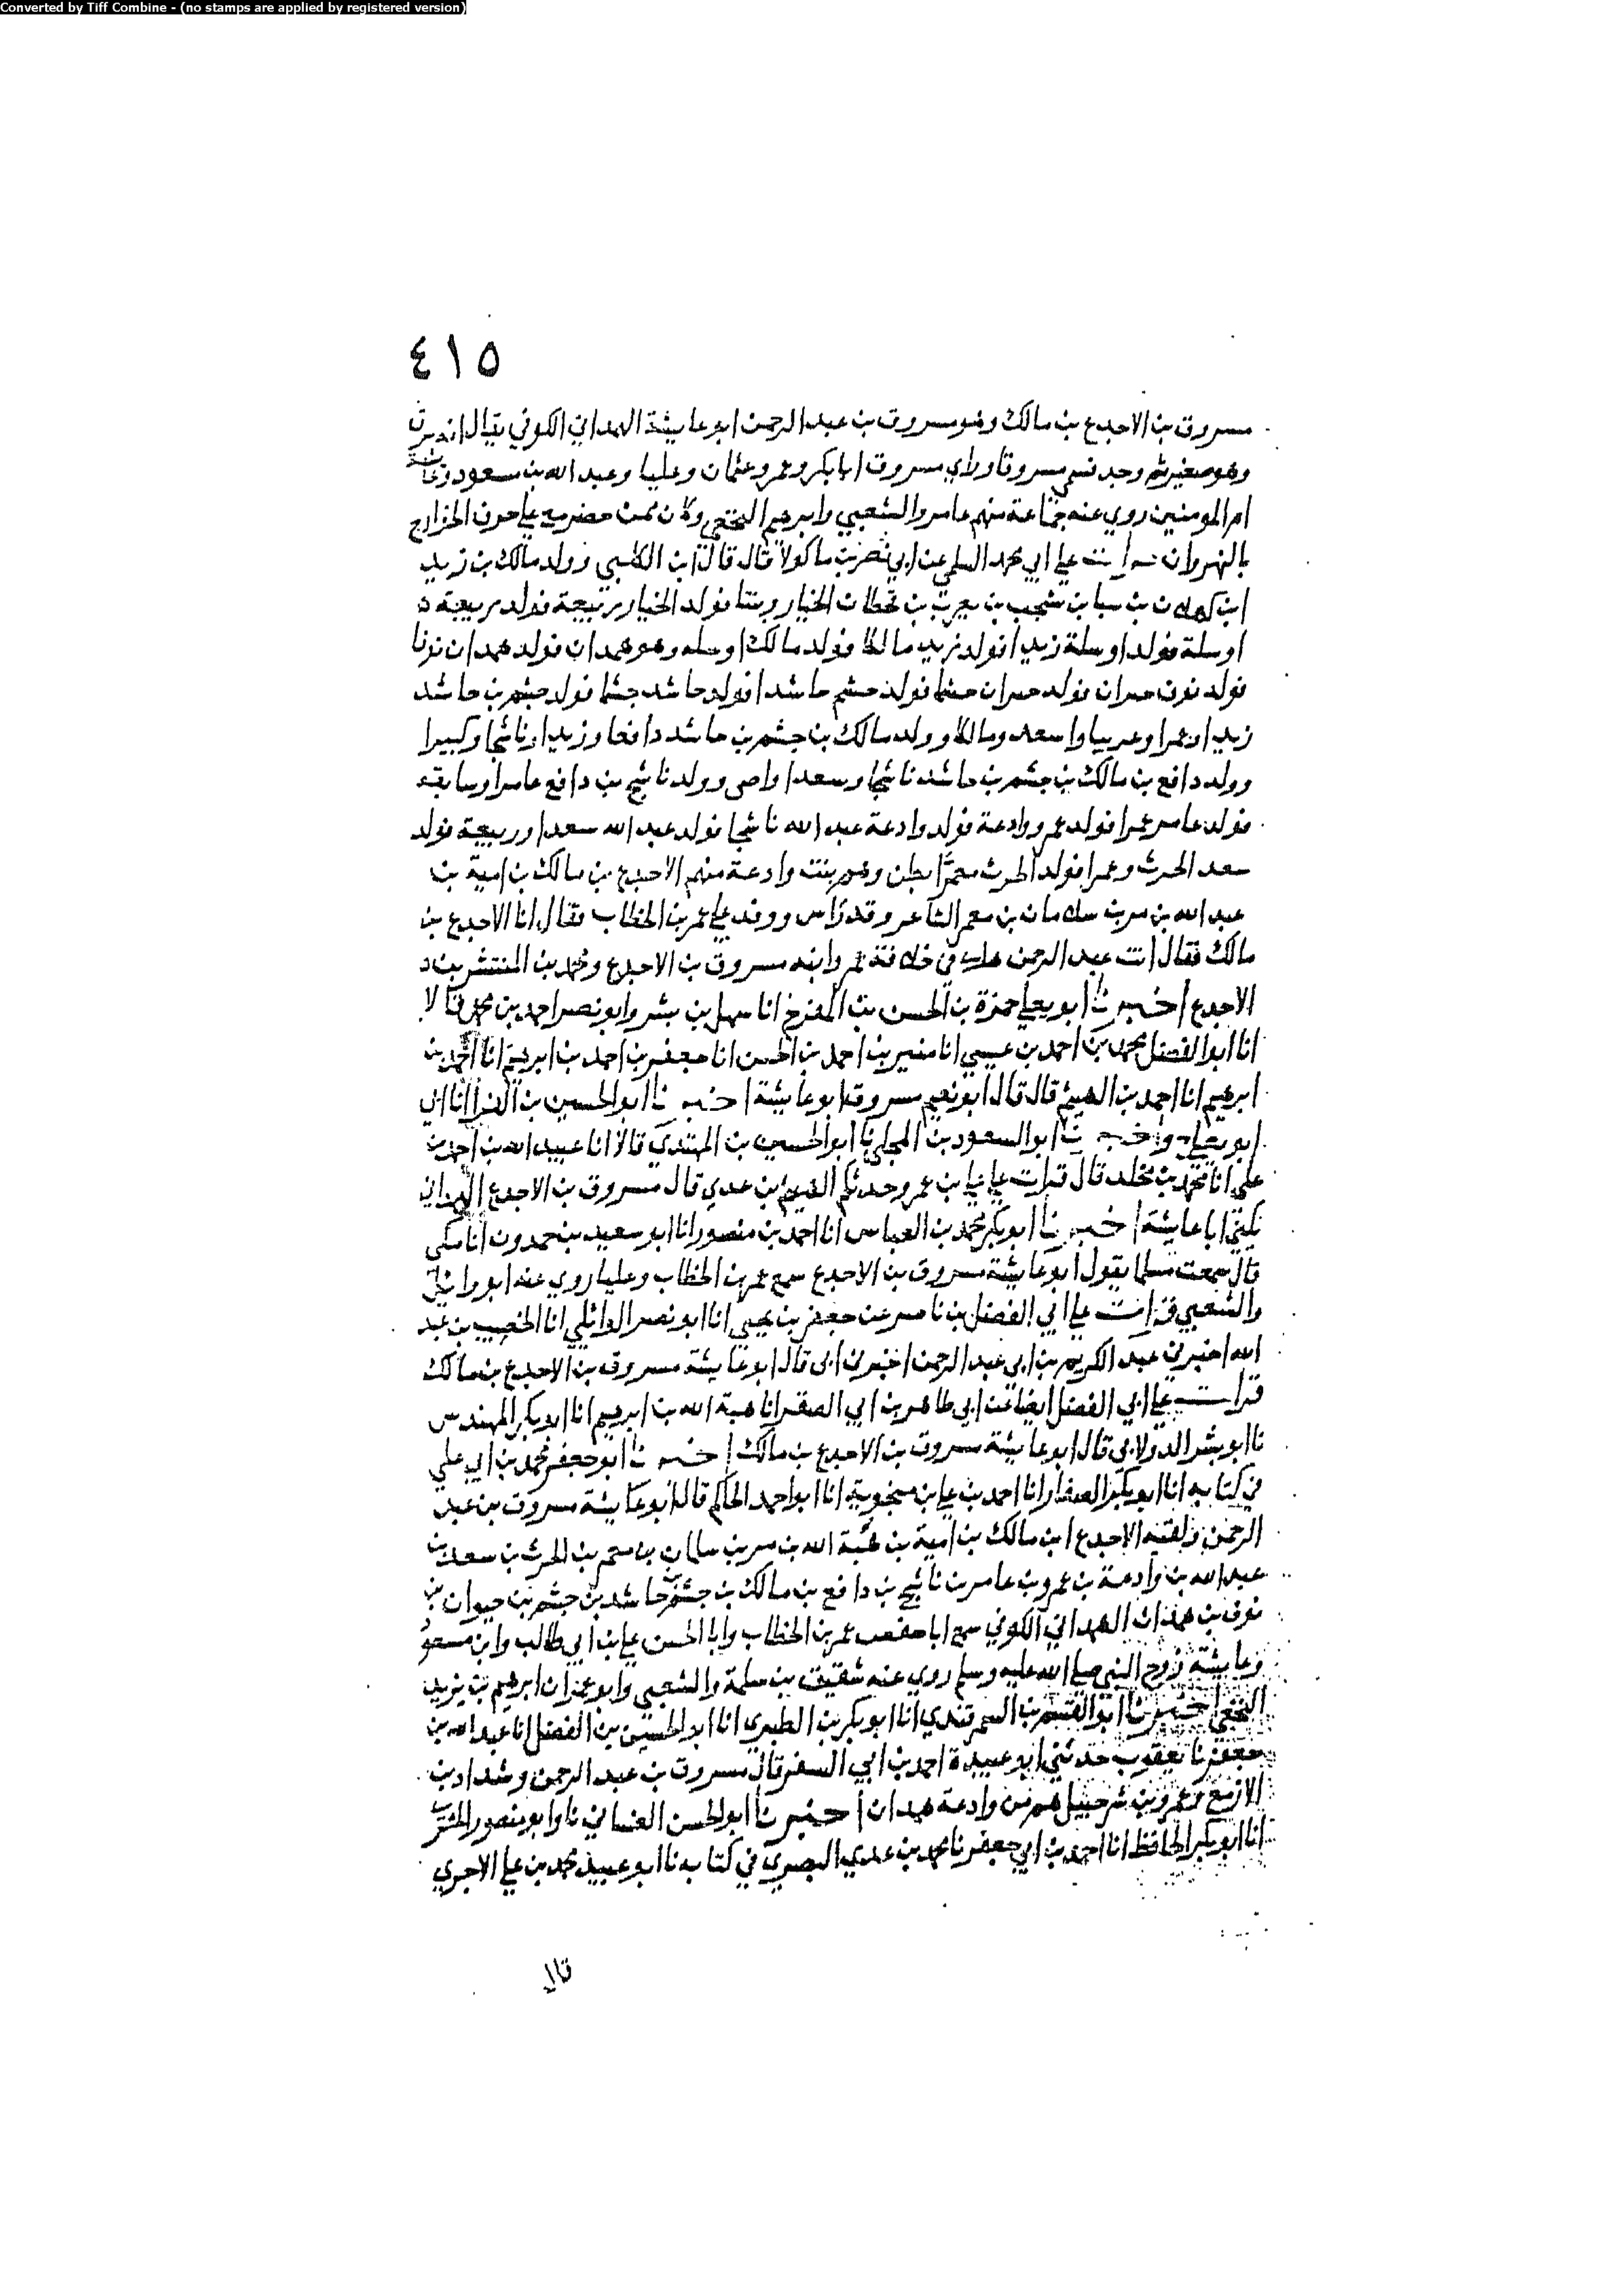 Converted by Tiff Combine - (no stamps are applied by registered version)
٤١٥
مسروق بن الاجدع بن مالك وهو مسروق بن عبد الرحمن ابو عايشة الهمداني الكوفي يقال انه سرق
وهو صغير ثم وجد فسمي مسروقا وراي مسروق ابا بكر وعمر وعثمان وعليا وعبد الله بن مسعود وعايشة
ام المومنين روي عنه جماعة منهم عامر الشعبي وابرهيم النخعي وكان ممن حضر مع علي حرب الخوارج
بالنهروان قرات علي ابي محمد السلمي عن ابي نصر بن ماكولا قال قال ابن الكلبي وولد مالك بن زيد
ابن كهلان بن سبا بن يشجب بن يعرب بن قحطان الخيار ونبتا فولد الخيار ربيعة فولد ربيعة
اوسلة فولد اوسلة زيدا فولد زيد مالكا فولد مالك اوسله وهو همدان فولد همدان نوفا
فولد نوف حبران فولد حبران جشما فولد جشم حاشدا فولد حاشد جشما فولد جشم بن حاشد
زيدا وعمرا وعريبا واسعد ومالكا وولد مالك بن جشم بن حاشد دافعا وزيدا وناشجا وكبيرا
وولد دافع بن مالك بن جشم بن حاشد ناشجا وسعدا واصى وولد ناشج بن دافع عامرا وسابقه
فولد عامر عمرا فولد عمرو وادعة فولد وادعة عبد الله ناشجا فولد عبد الله سعدا وربيعة فولد
سعد الحرث وعمرا فولد الحرث معمرا بطن وهم بنت وادعة منهم الاجدع بن مالك بن امية بن
عبد الله بن مر بن سلامان بن معمر الشاعر وقد راس ووفد علي عمر بن الخطاب فقال انا الاجدع بن
مالك فقال انت عبد الرحمن هلك في خلافة عمر وابنه مسروق بن الاجدع ومحمد بن المنتشر بن
الاجدع اخبرنا ابو يعلي حمزة بن الحسن بن المفرج انا سهل بن بشر وابو نصر احمد بن محمد قالا
انا ابو الفضل محمد بن احمد بن عيسي انا منير بن احمد بن الحسن انا جعفر بن احمد بن ابرهيم انا احمد بن
ابرهيم انا احمد بن الهيثم قال قال ابو نعيم مسروق ابو عايشة اخبرنا ابو الحسين بن الفرا انا ابي
ابو يعلي واخبرنا ابو السعود بن المجلي نا ابو الحسين بن المهتدي قالا انا عبيد الله بن احمد بن
علي انا محمد بن مخلد قال قرات علي علي بن عمرو حدثكم الهيثم بن عدي قال مسروق بن الاجدع الهمداني
يكني ابا عايشة اخبرنا ابو بكر محمد بن العباس انا احمد بن منصور انا ابو سعيد بن حمدون انا مكي
قال سمعت مسلما يقول ابو عايشة مسروق بن الاجدع سمع عمر بن الخطاب وعليا روي عنه ابو وائل
والشعبي قرات علي ابي الفضل بن ناصر عن جعفر بن يحيي انا ابو نصر الوائلي انا الخصيب بن عبد
الله اخبرني عبد الكريم بن ابي عبد الرحمن اخبرني ابي قال ابو عايشة مسروق بن الاجدع بن مالك
قرات علي ابي الفضل ايضا عن ابي طاهر بن ابي الصقر انا هبة الله بن ابرهيم انا ابو بكر المهندس
نا ابو بشر الدولابي قال ابو عايشة مسروق بن الاجدع بن مالك اخبرنا ابو جعفر محمد بن ابي علي
في كتابه انا ابو بكر الصفار انا احمد بن علي بن منجويه انا ابو احمد الحاكم قال ابو عايشة مسروق بن عبد
الرحمن ولقبه الاجدع ابن مالك بن امية بن عبد الله بن مر بن سلمان بن معمر بن الحرث بن سعد بن
عبد الله بن وادعة بن عمرو بن عامر بن ناشج بن دافع بن مالك بن جشم بن حاشد بن جشم بن حيوان بن
نوف بن همدان الهمداني الكوفي سمع ابا حفص عمر بن الخطاب وابا الحسن علي بن ابي طالب وابن مسعود
وعايشة زوج النبي صلي الله عليه وسلم روي عنه شقيق بن سلمة والشعبي وابو عمران ابرهيم بن يزيد
النخعي اخبرنا ابو القسم بن السمرقندي انا ابو بكر بن الطبري انا ابو الحسين بن الفضل انا عبد الله بن
جعفر نا يعقوب حدثني ابو عبيدة احمد بن ابي السفر قال مسروق بن عبد الرحمن وشداد بن
الازمع وعمرو بن شرحبيل هم من وادعة همدان اخبرنا ابو الحسن الغساني نا وابو منصور المقرب
انا ابو بكر الحافظ انا احمد بن ابي جعفر نا محمد بن عدي البصري في كتابه نا ابو عبيد محمد بن علي الاجري
قال